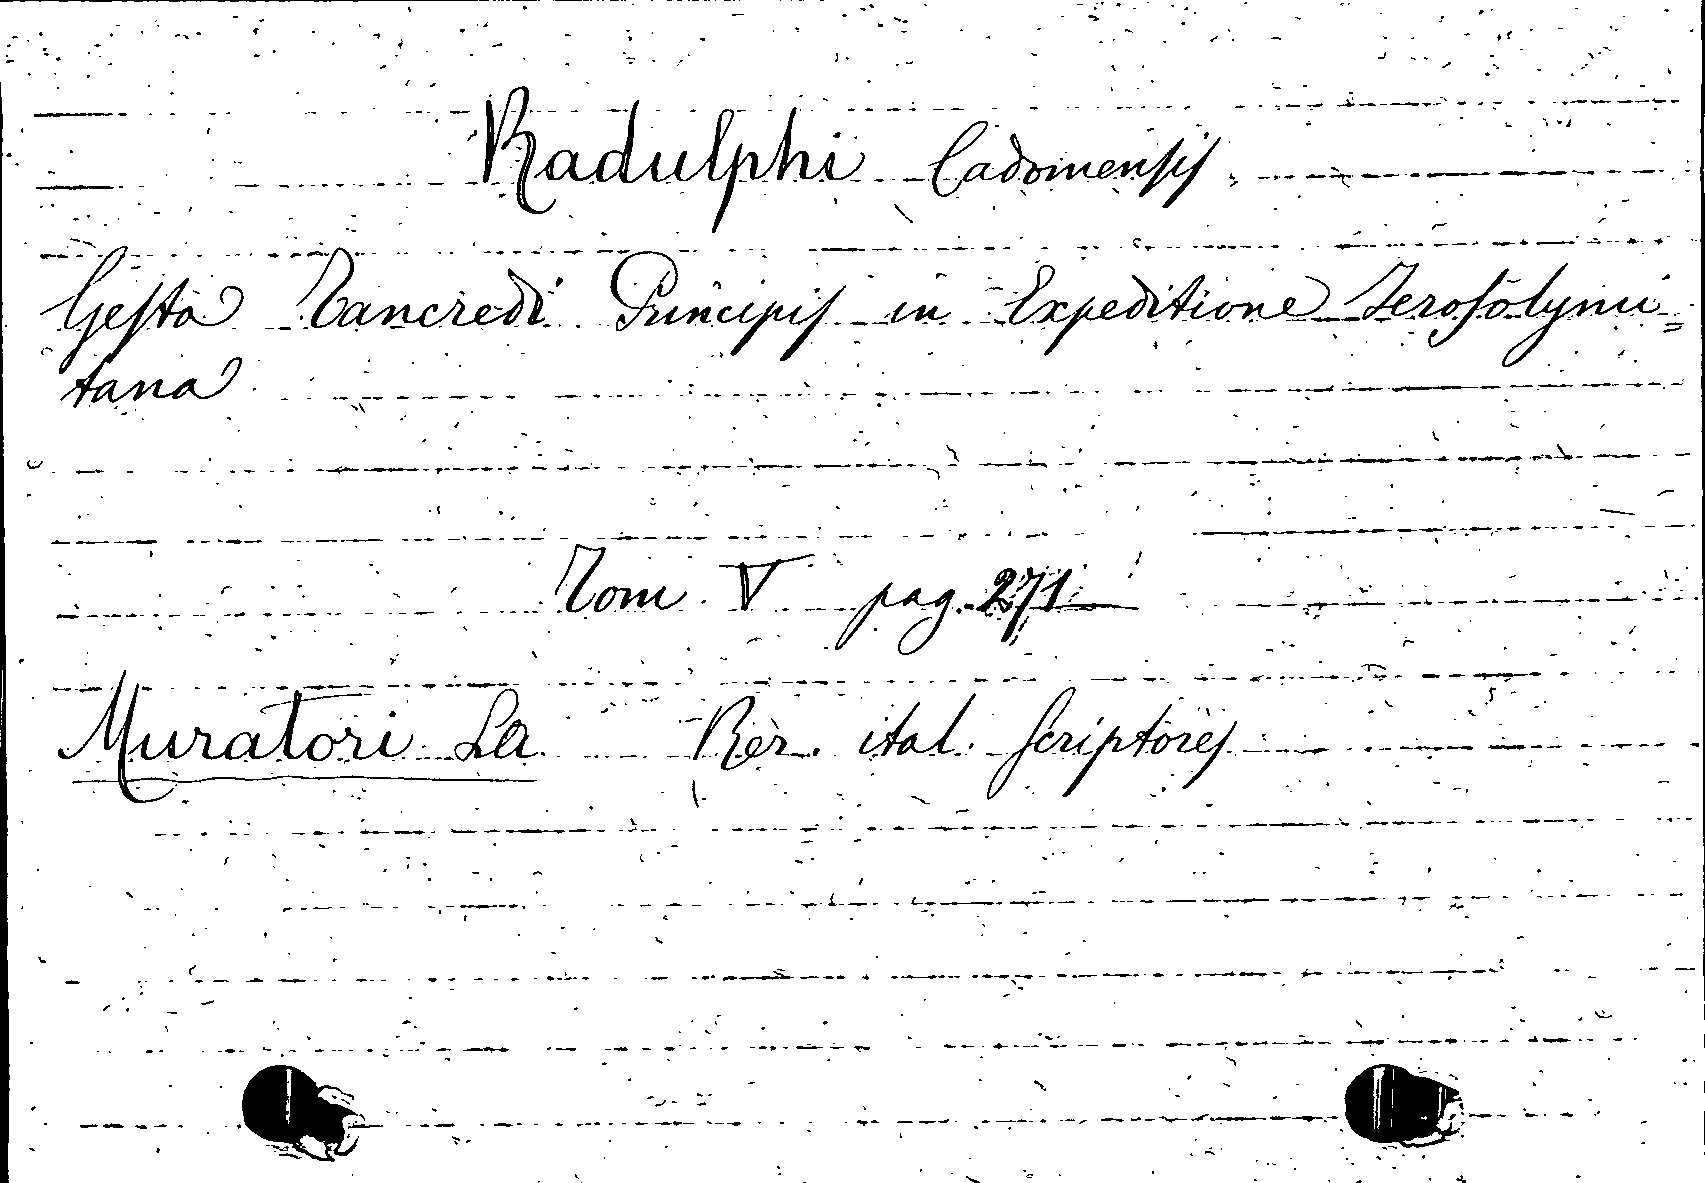 Radulphi Cadomensis
Gesta Tancredi Principis in Expeditione Jerosolymi=
tana
Tom V pag. 271
Muratori La Rer. ital. Scriptores